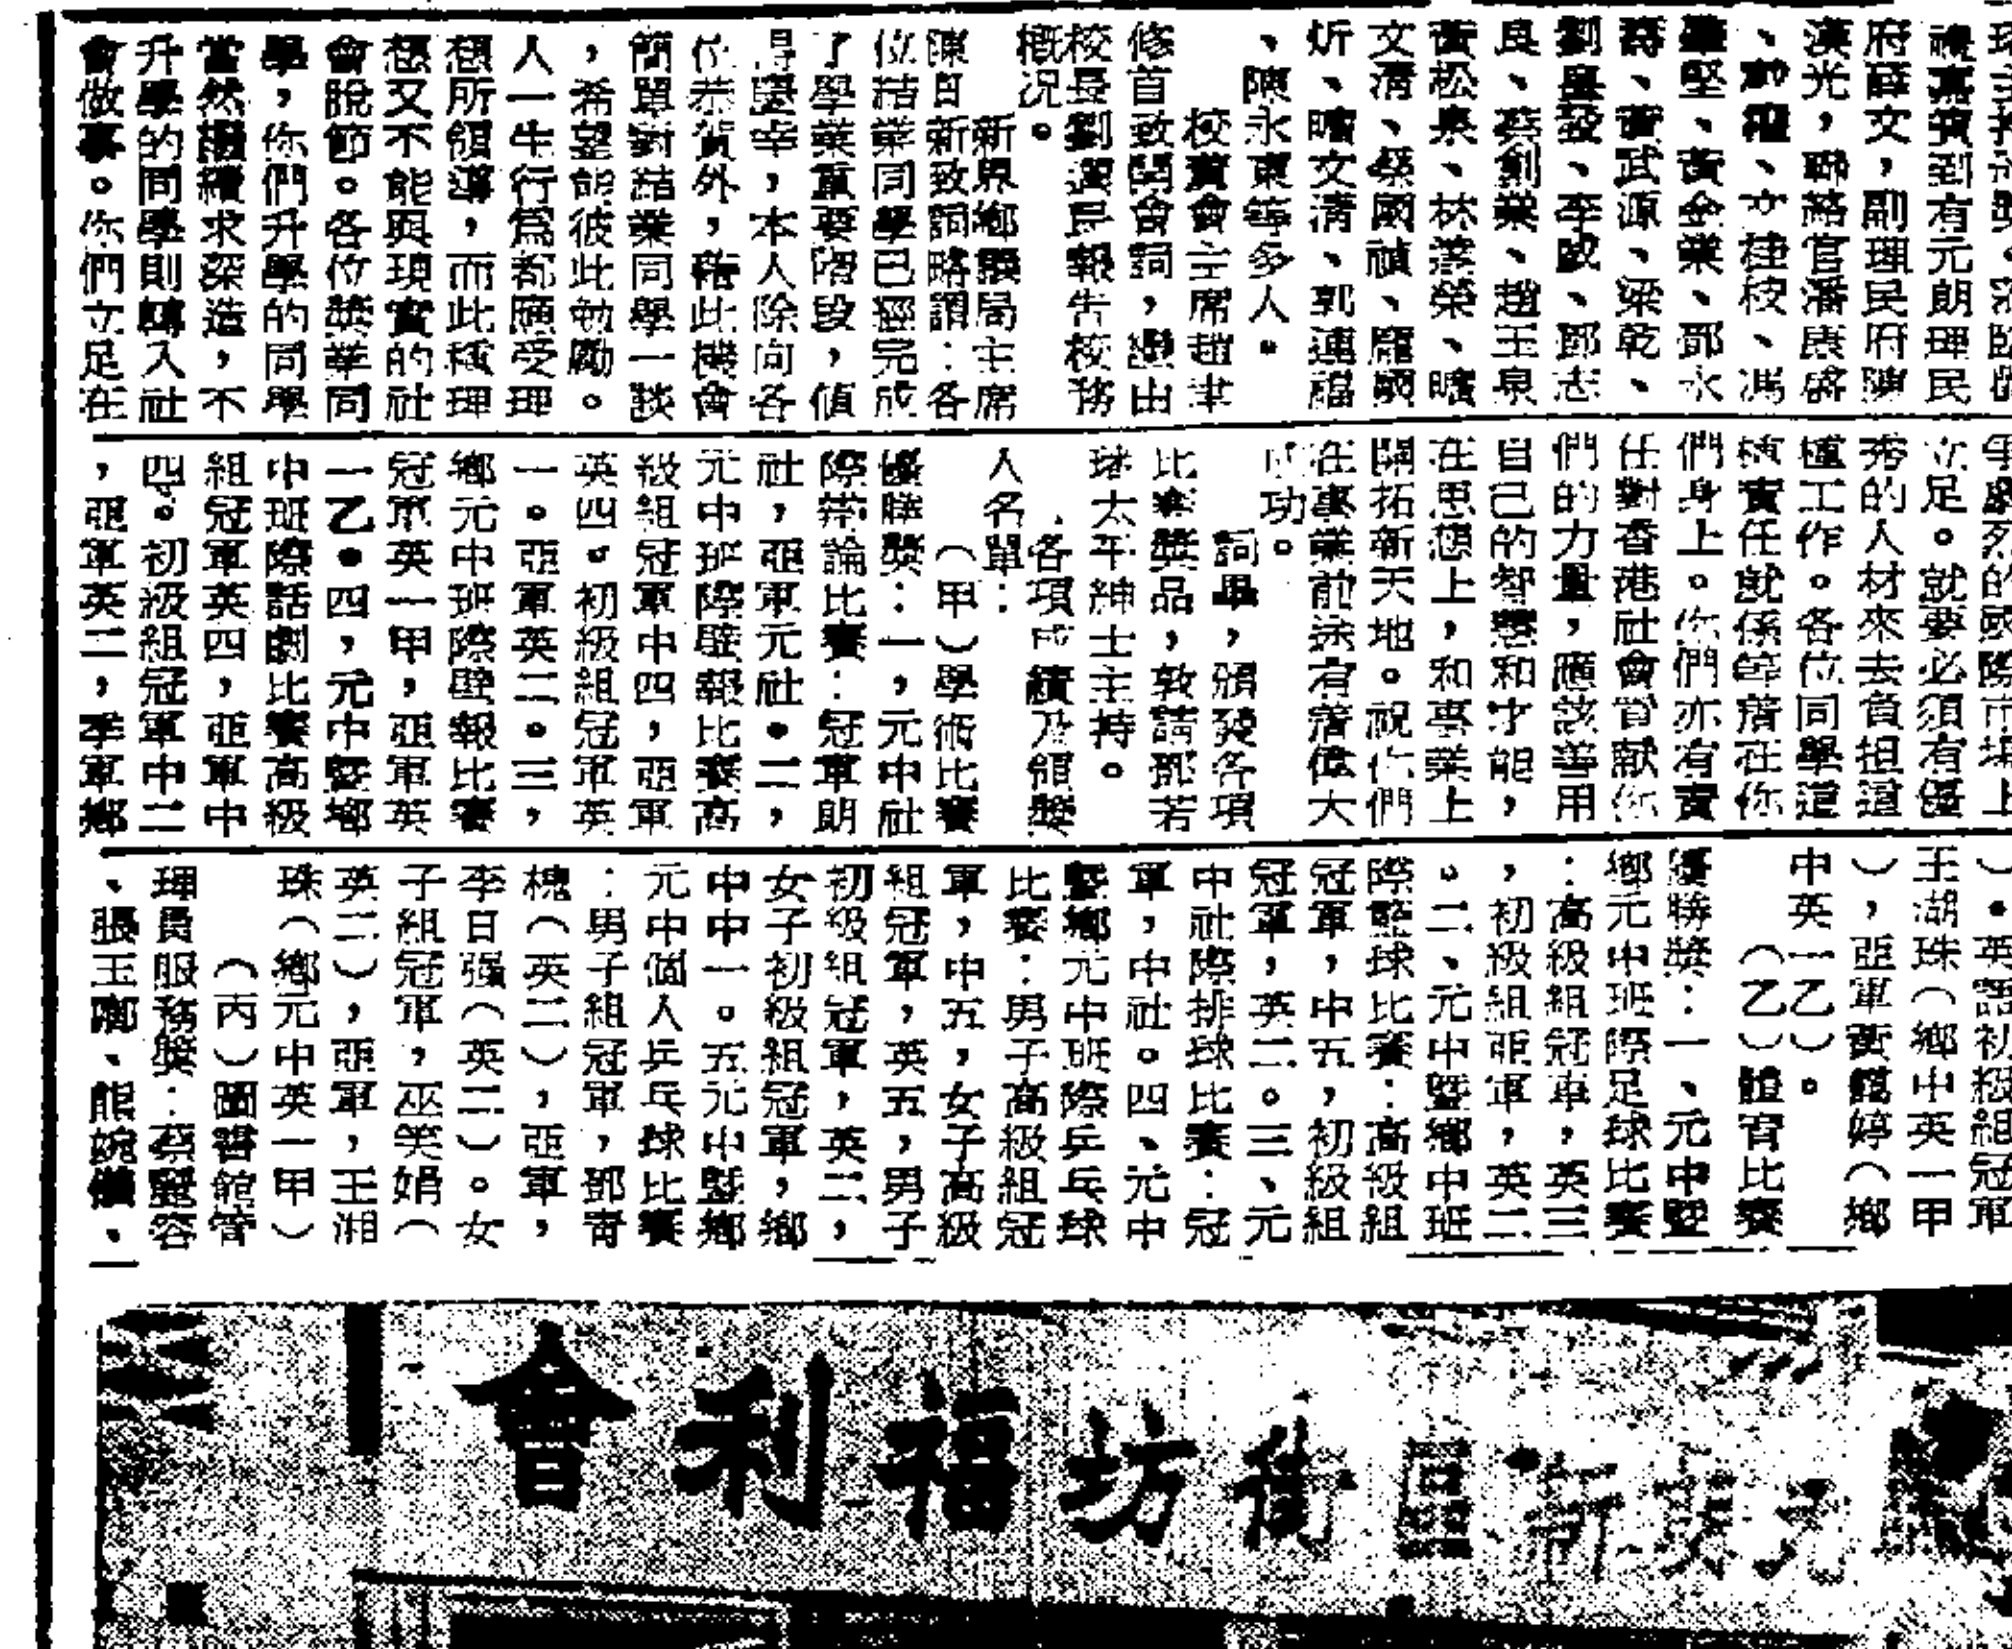 禮嘉賓到有元朗理民
府薛文，副理民府陳
漢光，聯絡官潘康
、文桂枝、馮
堅、黃金業、鄧永
、黃武源、梁乾、
劉皇發、李啟、鄧志
良、蔡創業、趙玉泉
黃松泉、林榮、曠
文清、蔡國禎、龐國
炘、曠文清、郭連福
、陳永東等多人。
校董會主席趙聿
修首致開會詞，繼由
校長劉選民報告校務
概况。
新界鄉議局主席
陳日新致詞略謂：各
位結業同學已經完成
了學業重要階段，值
得慶幸，本人除向各
位恭賀外，藉此機會
簡單對結業同學一談
，希望能彼此勉勵。
人一生行爲都願受理
想所領導，而此種理
想又不能與現實的社
會脫節。各位畢業同
學，你們升學的同學
當然繼續求深造，不
升學的同學則轉入社
會做事。你們立足在
烈的國際市場上
立足。就要必須有優
秀的人材來去負担這
種工作。各位同學這
種責任就係等落在你
們身上。你們亦有責
任對香港社會貢献你
們的力量，應該善用
自己的智慧和才能，
在思想上，和事業上
開拓新天地。祝你們
在事業前途有着偉大
成功。
詞畢，頒發各項
比賽獎品，敦請鄧若
琳太平紳士主持。
各項成績及領獎
人名單：
（甲）學術比賽
優勝獎：一，元中社
際辯論比賽：冠軍朗
社，亞軍元社。二，
元中班際壁報比賽高
級組冠軍中四，亞軍
英四。初級組冠軍英
一。亞軍英二。三，
鄉元中班際壁報比賽
冠軍英一甲，亞軍英
一乙。四，元中暨鄉
中班際話劇比賽高級
組冠軍英四，亞軍中
四。初級組冠軍中二
，亞軍英二，季軍鄉
）。英語初級組冠軍
王湖珠（鄉中英一甲
），亞軍黃婷（鄉
中英一乙）。
（乙）體育比賽
優勝獎：一、元中暨
鄉元中班際足球比賽
：高級組冠軍，英三
，初級組亞軍，英二
。二、元中暨鄉中班
際籃球比賽：高級組
冠軍，中五，初級組
冠軍，英二。三、元
中社際排球比賽：冠
軍，中社。四、元中
暨鄉元中班際乒乓球
比賽：男子高級組冠
軍，中五，女子高級
組冠軍，英五，男子
初級組冠軍，英二，
女子初級組冠軍，鄉
中中一。五元中暨鄉
元中個人乒乓球比賽
：男子組冠軍，鄧青
槐（英二），亞軍，
李日强（英二）。女
子組冠軍，巫笑娟（
英二），亞軍，王湘
珠（鄉元中英一甲）
（丙）圖書館管
理員服務獎：蔡麗容
、張玉、熊婉儀、
元朗新區街坊福利會